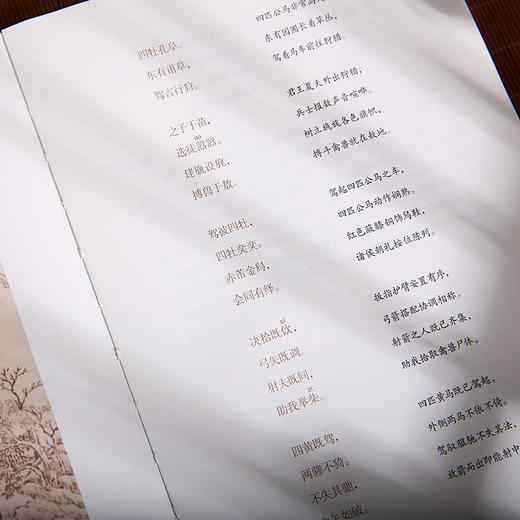 四牡孔阜。
东有甫草，
驾言行狩。
之子于苗，
áo
选徒嚣嚣。
建旐设旄，
搏兽于敖。
驾彼四牡，
四牡奕奕。
赤芾金舄，
会同有绎。
cì
决拾既佽，
弓矢既调。
射夫既同，
zì
助我举柴。
四黄既驾，
两骖不猗。
不失其驰，
舍矢如破。
四匹公马非常高
东有园圃长着草丛，
驾着马车前往狩猎。
君王夏天外出狩猎，
兵士报数声音喧哗。
树立旐旄各色旗帜，
搏斗禽兽就在敖地。
驾起四匹公马之车，
四匹公马动作娴熟。
红色蔽膝铜饰舄鞋，
诸侯朝礼按位陈列。
扳指护臂安置有序，
弓箭搭配协调相称。
射箭之人既已齐集，
助我拾取禽兽尸体。
四匹黄马既已驾起，
外侧两马不依不倚。
驾驭驱驰不失其法，
放箭而出即能射中